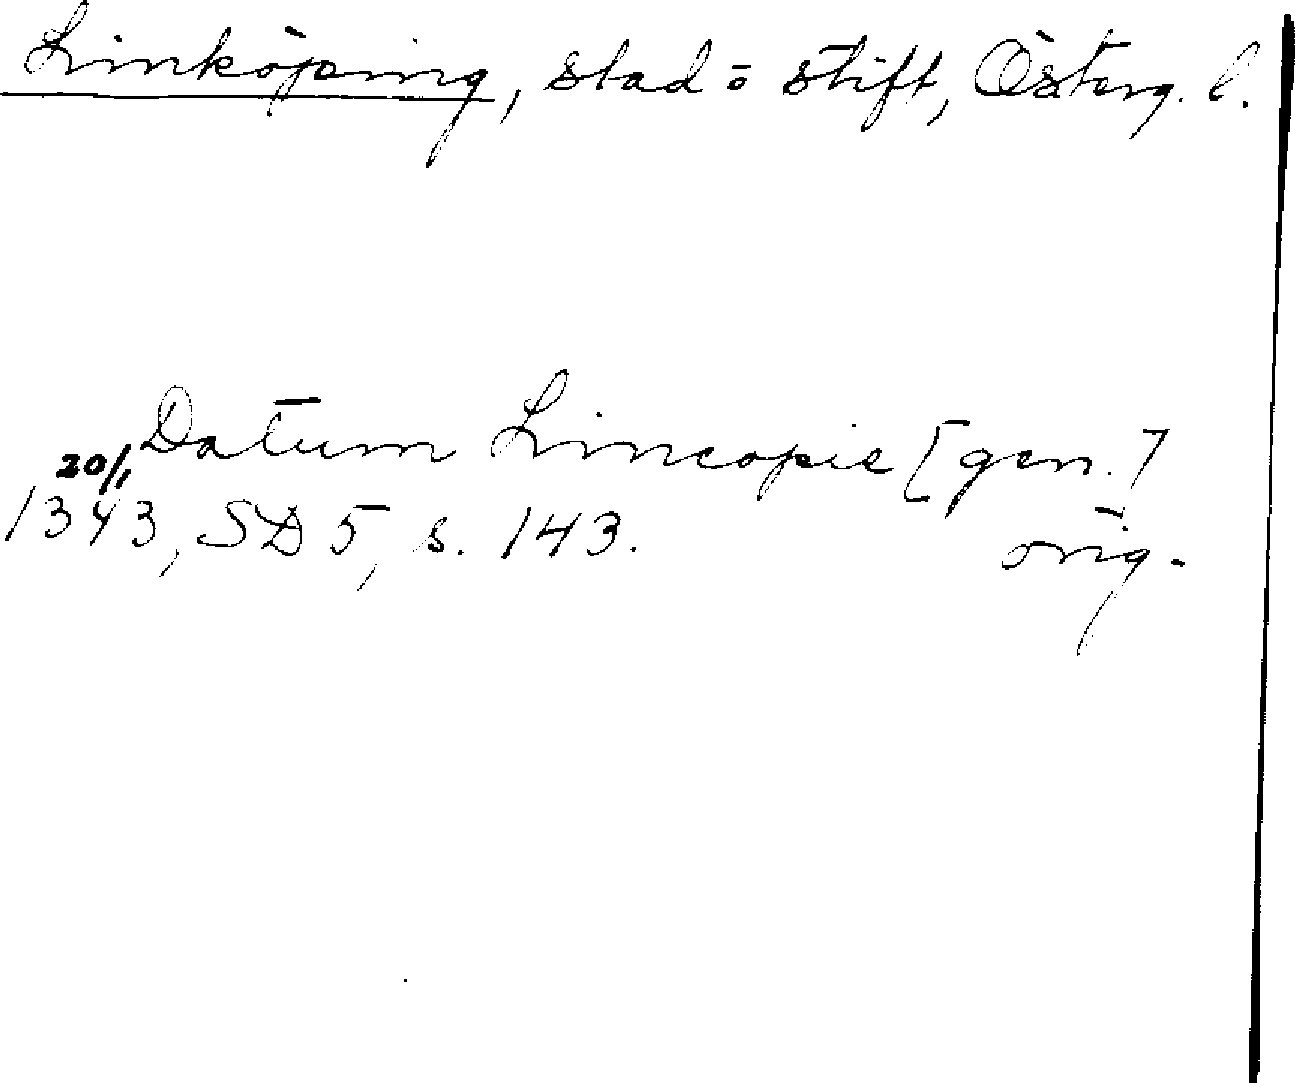 Linköping, stad o stift, Österg. l.
Datum Lincopie [gen.]
20/1
1343, SD 5, s. 143. orig.